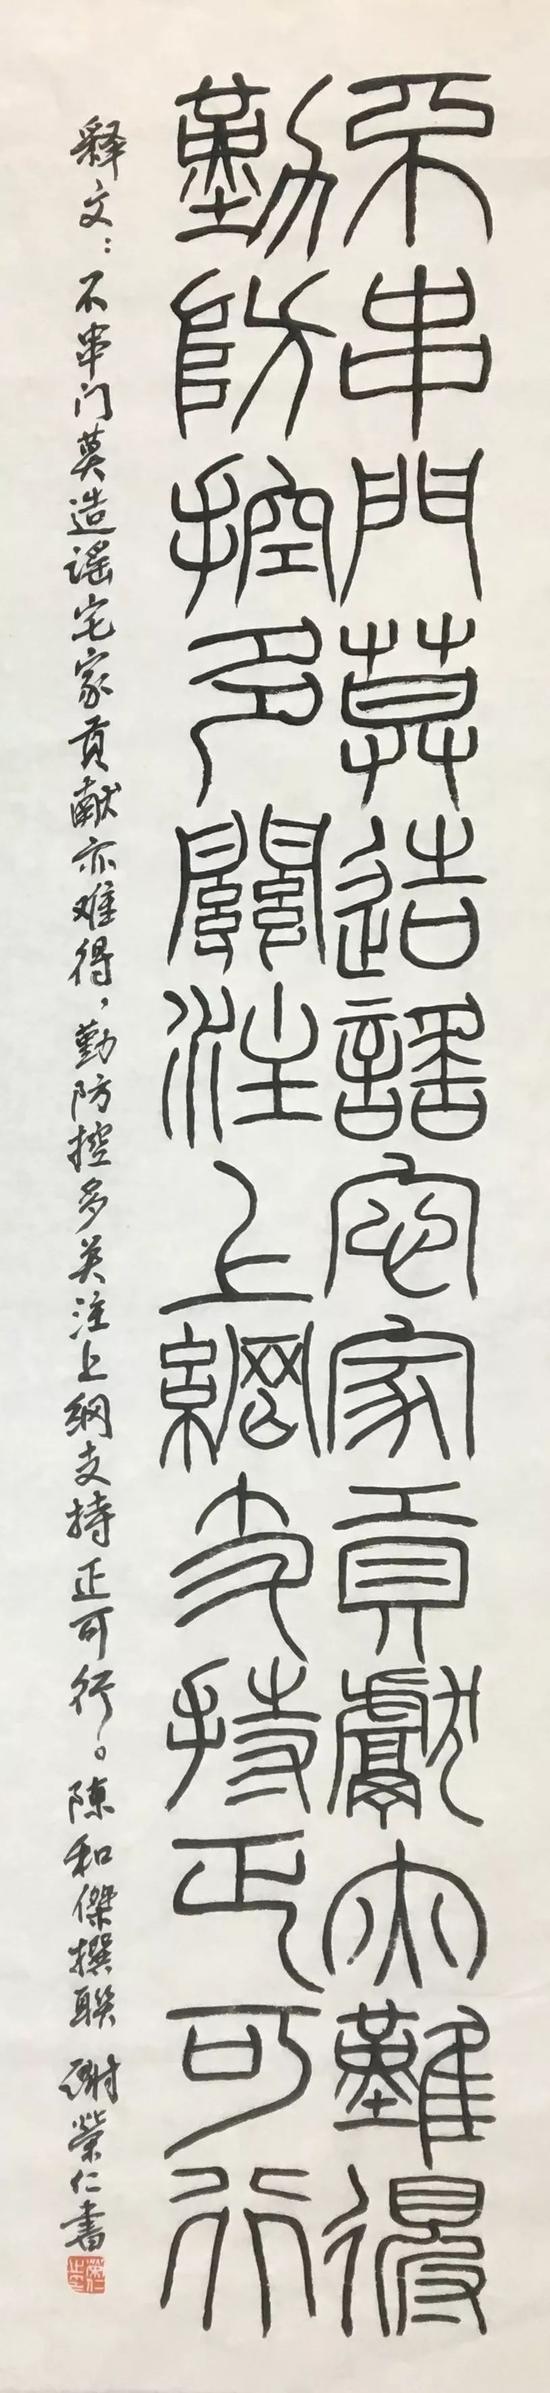 不串門莫造謠宅家貢獻亦難得
勤防控多關注上網支持正可行
释文：不串门莫造谣宅家贡献亦难得，勤防控多关注上网支持正可行。陳和傑撰联 谢榮仁書